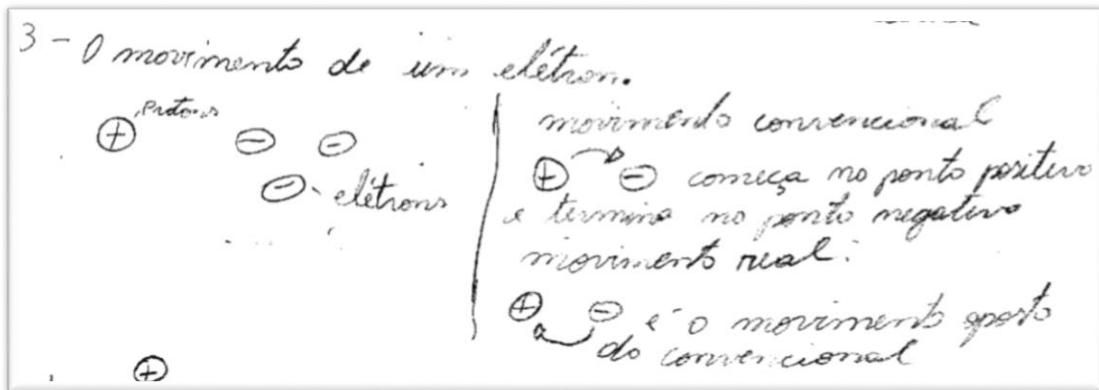 3 - O movimento de um elétron.
+ Prótons - -
- elétrons
movimento convencional
+ - começa no ponto positivo
e termina no ponto negativo
movimento real:
+ - é o movimento oposto
do convencional
+